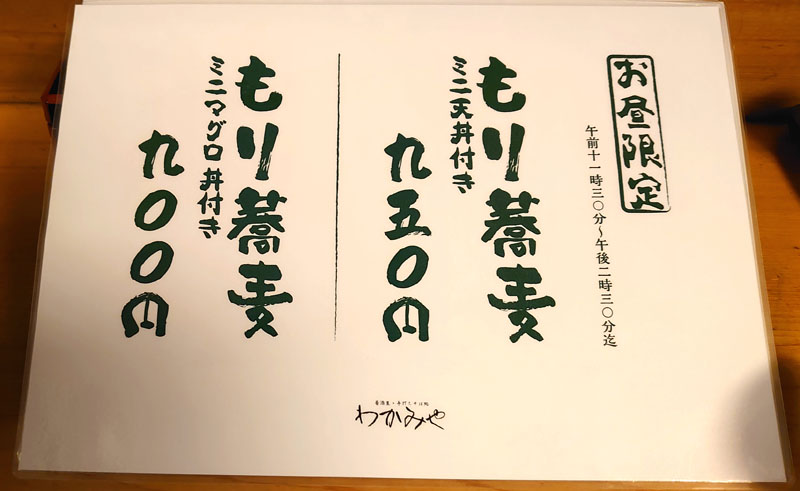 お昼限定
午前十一時三〇分～午後二時三〇分迄
もり蕎麦
ミニ天丼付き
九五〇円
もり蕎麦
ミニマグロ丼付き
九〇〇円
居酒屋・手打ちそば処
わかみや